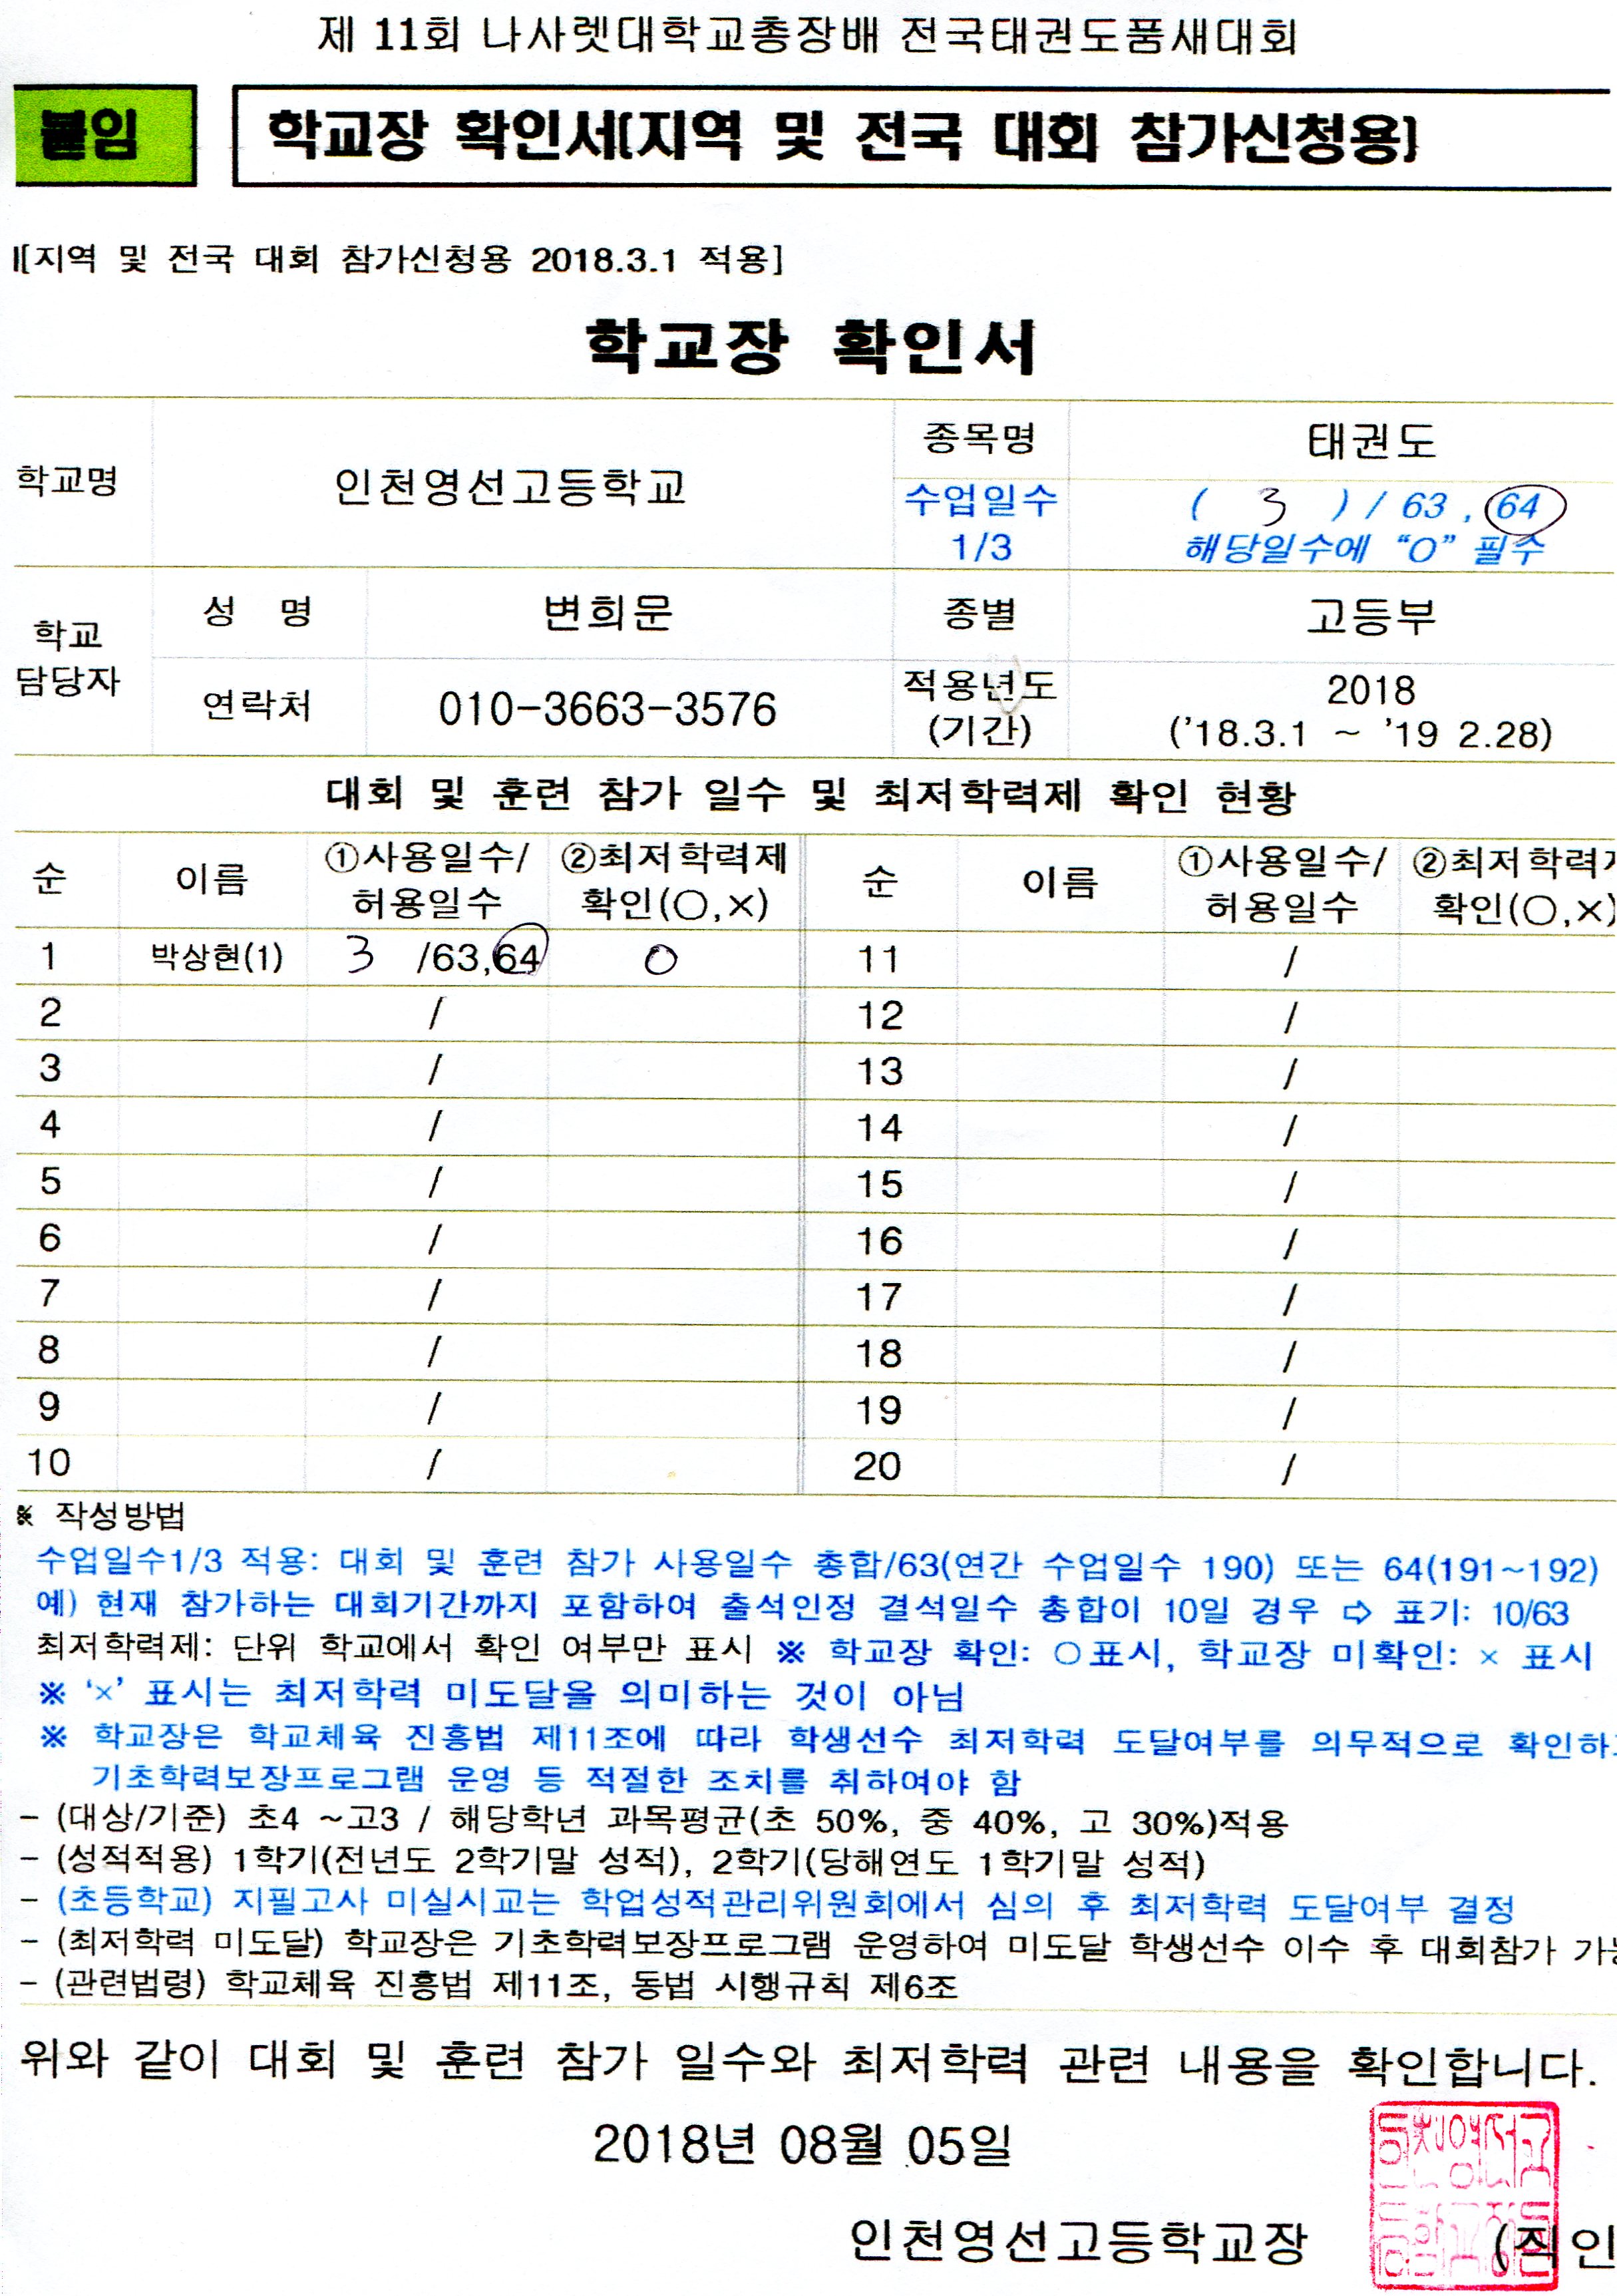 제 11회 나사렛대학교총장배 전국태권도품새대회
붙임
학교장 확인서[지역 및 전국 대회 참가신청용]
[지역 및 전국 대회 참가신청용 2018.3.1 적용]
학교장 확인서
학교명 인천영선고등학교 종목명 태권도
수업일수 1/3 ( 3 ) / 63 , 64
해당일수에 “O” 필수
학교 담당자 성 명 변희문 종별 고등부
연락처 010-3663-3576 적용년도 (기간) 2018
('18.3.1 ~ '19 2.28)
대회 및 훈련 참가 일수 및 최저학력제 확인 현황
순 이름 ①사용일수/허용일수 ②최저학력제 확인(○,×) 순 이름 ①사용일수/허용일수 ②최저학력 확인(○,×)
1 박상현(1) 3 /63,64 O 11 /
2 / 12 /
3 / 13 /
4 / 14 /
5 / 15 /
6 / 16 /
7 / 17 /
8 / 18 /
9 / 19 /
10 / 20 /
※ 작성방법
수업일수1/3 적용: 대회 및 훈련 참가 사용일수 총합/63(연간 수업일수 190) 또는 64(191~192)
예) 현재 참가하는 대회기간까지 포함하여 출석인정 결석일수 총합이 10일 경우 ⇨ 표기: 10/63
최저학력제: 단위 학교에서 확인 여부만 표시 ※ 학교장 확인: ○표시, 학교장 미확인: × 표시
※ ‘×’ 표시는 최저학력 미도달을 의미하는 것이 아님
※ 학교장은 학교체육 진흥법 제11조에 따라 학생선수 최저학력 도달여부를 의무적으로 확인하
기초학력보장프로그램 운영 등 적절한 조치를 취하여야 함
- (대상/기준) 초4 ~고3 / 해당학년 과목평균(초 50%, 중 40%, 고 30%)적용
- (성적적용) 1학기(전년도 2학기말 성적), 2학기(당해연도 1학기말 성적)
- (초등학교) 지필고사 미실시교는 학업성적관리위원회에서 심의 후 최저학력 도달여부 결정
- (최저학력 미도달) 학교장은 기초학력보장프로그램 운영하여 미도달 학생선수 이수 후 대회참가 가
- (관련법령) 학교체육 진흥법 제11조, 동법 시행규칙 제6조
위와 같이 대회 및 훈련 참가 일수와 최저학력 관련 내용을 확인합니다.
2018년 08월 05일
인천영선고등학교장 (직인